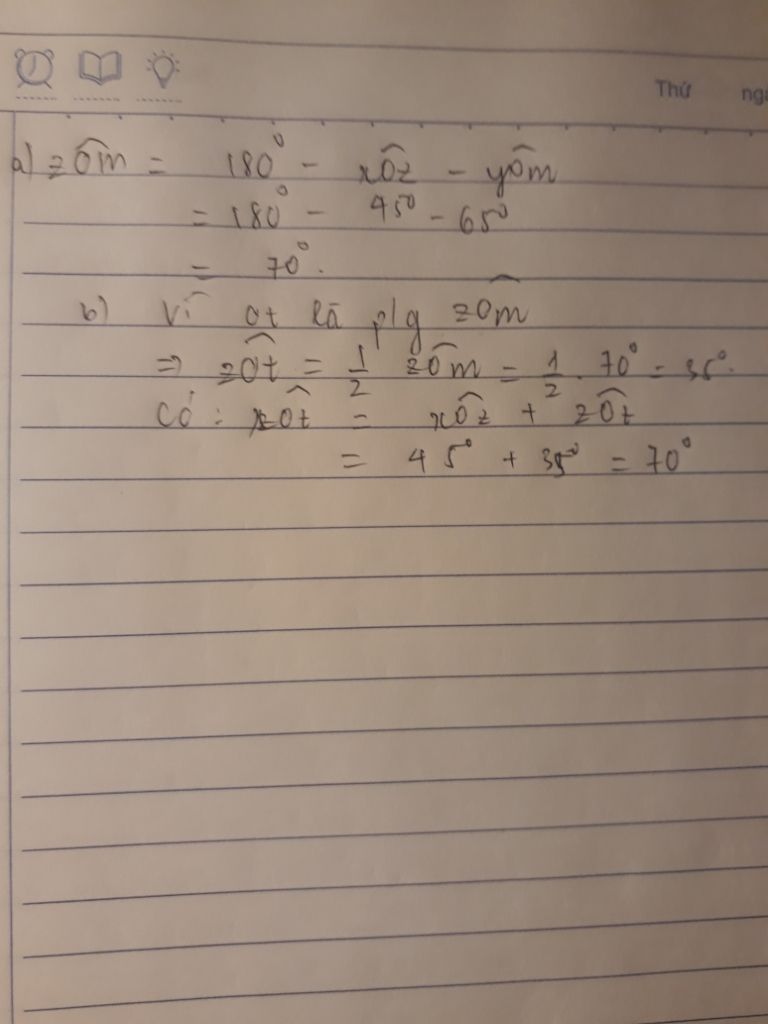 Thứ
a) zÔm = 180° - xÔz - yÔm
= 180° - 45° - 65°
= 70°.
b) Vì Ot là p/g zÔm
=> zÔt = 1/2 zÔm = 1/2 . 70° = 35°.
Có : xÔt = xÔz + zÔt
= 45° + 35° = 70°